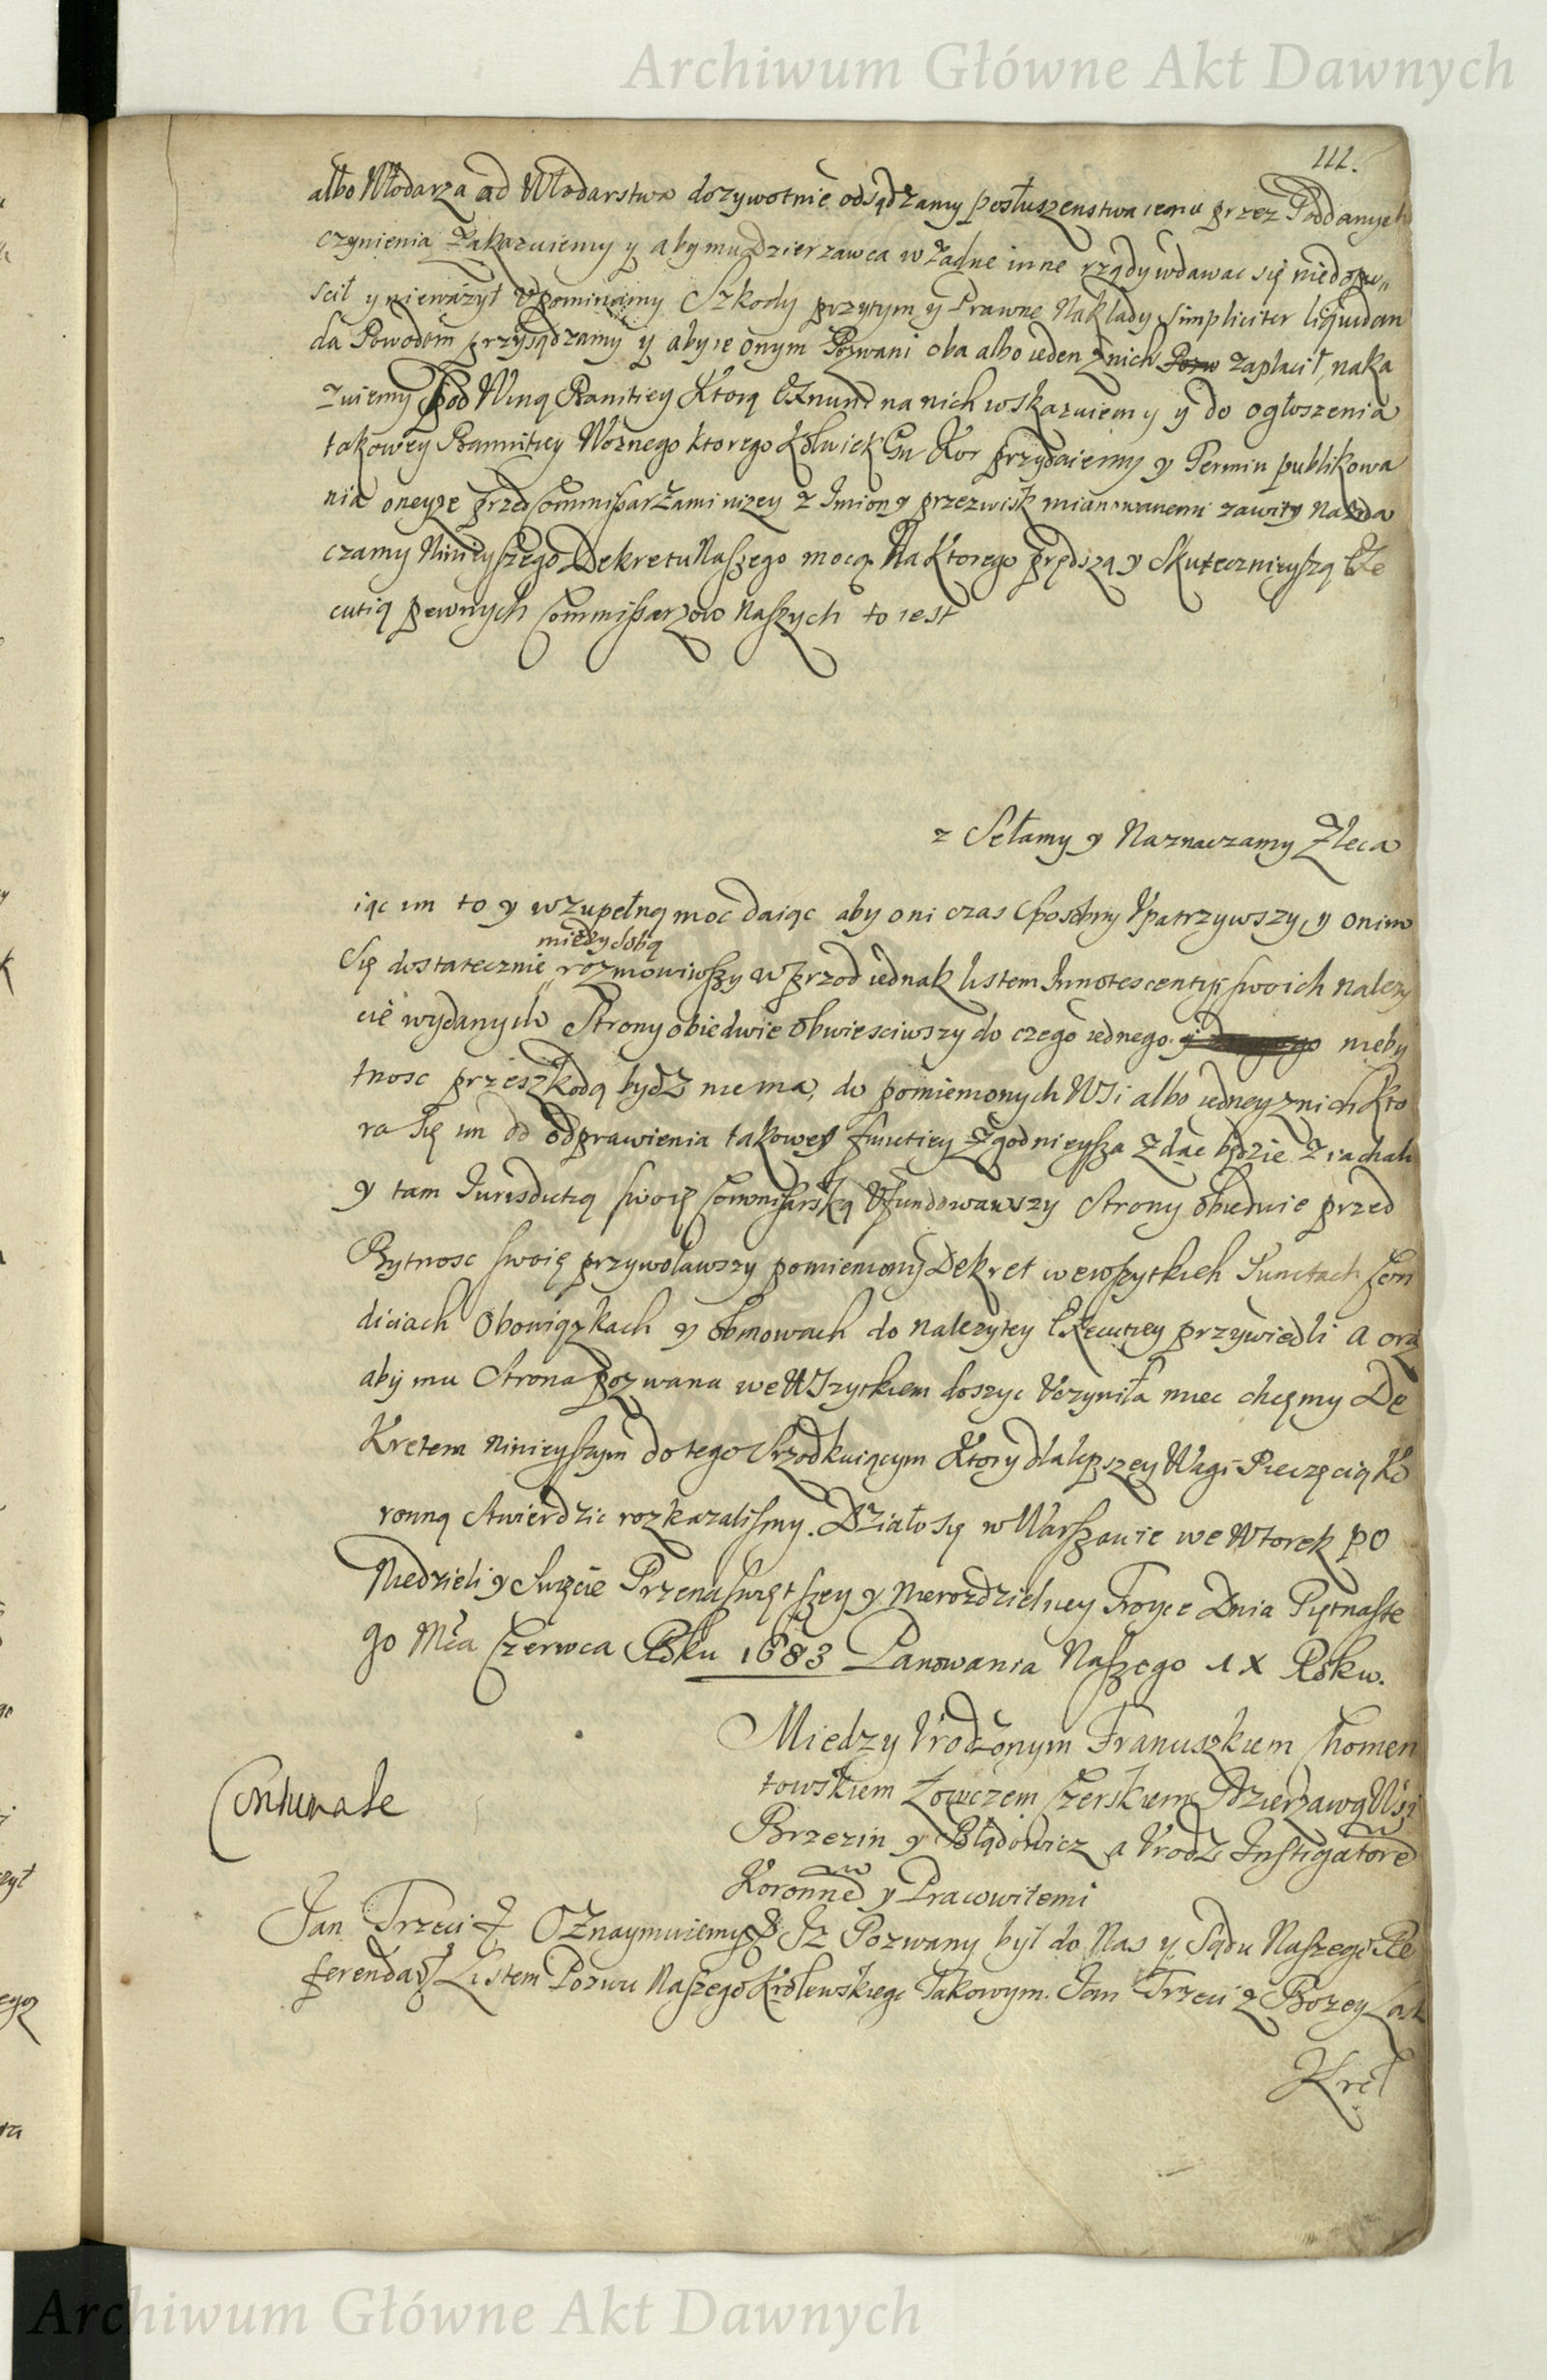 Archiwum Główne Akt Dawnych
111.
albo Włodarza od Włodarstwa dozywotnie odsądzamy posłuszenstwa iemu przez Poddanych
czynienia zakazuiemy y aby mu dzierzawca w żadne inne rządy wdawac się niedopu„
scił y nieważył Vpominamy Szkody przytym y Prawne Nakłady simpliciter liquidan
da Powodom przysądzamy y aby ie onym Pozwani oba albo ieden znich Pozw zapłacił, naka
zuiemy pod Winą Banitiey Ktorą Exnunc na nich wskazuiemy y do ogłoszenia
takowey Bannitiey Woznego ktorego kolwiek Gn Kor przydaiemy y Termin publikowa
nia oneyze przed Commissarzami nizey z Imion y przezwisk mianowanemi zawity Nazna
czamy Ninieyszego Dekretu Naszego mocą Na Ktorego prędszą y Skutecznieyszą Exe
cutią pewnych Commissarzow Naszych to iest
z Sełamy y Naznaczamy Zleca
iąc im to y w zupełną moc daiąc aby oni czas Sposobny Vpatrzywszy, y o nim
między sobą
Się dostatecznie rozmowiwszy w przod iednak listem Innotescentyi swoich nalezy
cie wydanych Strony obiedwie obwiesciwszy do czego iednego nieby
tnosc przeszkodą bydz niema, do pomienionych WSi albo iedney znich Kto
ra Się im do odprawienia takowey functiey zgodnieysza zdac będzie ziachali
y tam Iurisdictią swoię Commissarską Vfundowawszy Strony obiedwie przed
Bytnosc swoię przywoławszy pomieniony Dekret we wszytkich Punctach Con
diciach Obowiązkach y obmowach do nalezytey Exekutiey przywiedli a oraz
aby mu Strona pozwana we WSzytkiem doszyc Vczyniła miec chcemy De
Kretem ninieyszym do tego Srzodkuiącym Ktory dla lepszey Wagi Pieczęcią Ko
ronną stwierdzic rozkazalismy. Działo się w Warszawie we Wtorek po
Niedzieli y Swięcie Przenaswiętszey y Nierozdzielney Troyce Dnia Piętnaste
go Mca Czerwca Roku 1683 Panowania Naszego IX Roku.
Miedzy Vrodzonym Franciszkiem Chomen
towskiem Łowczem Czerskiem Dzierzawcą WSi
Brzezin y Błądowicz a Vrodz Instigatore
Koronne y Pracowitemi
Contumate
Jan Trzeci & Oznaymuiemy & Iz Pozwany był do Nas y Sądu Naszego Re
ferendar Listem Pozwu Naszego Krolewskiego Takowym. Jan Trzeci z Bozey Łas
Krol
Archiwum Główne Akt Dawnych